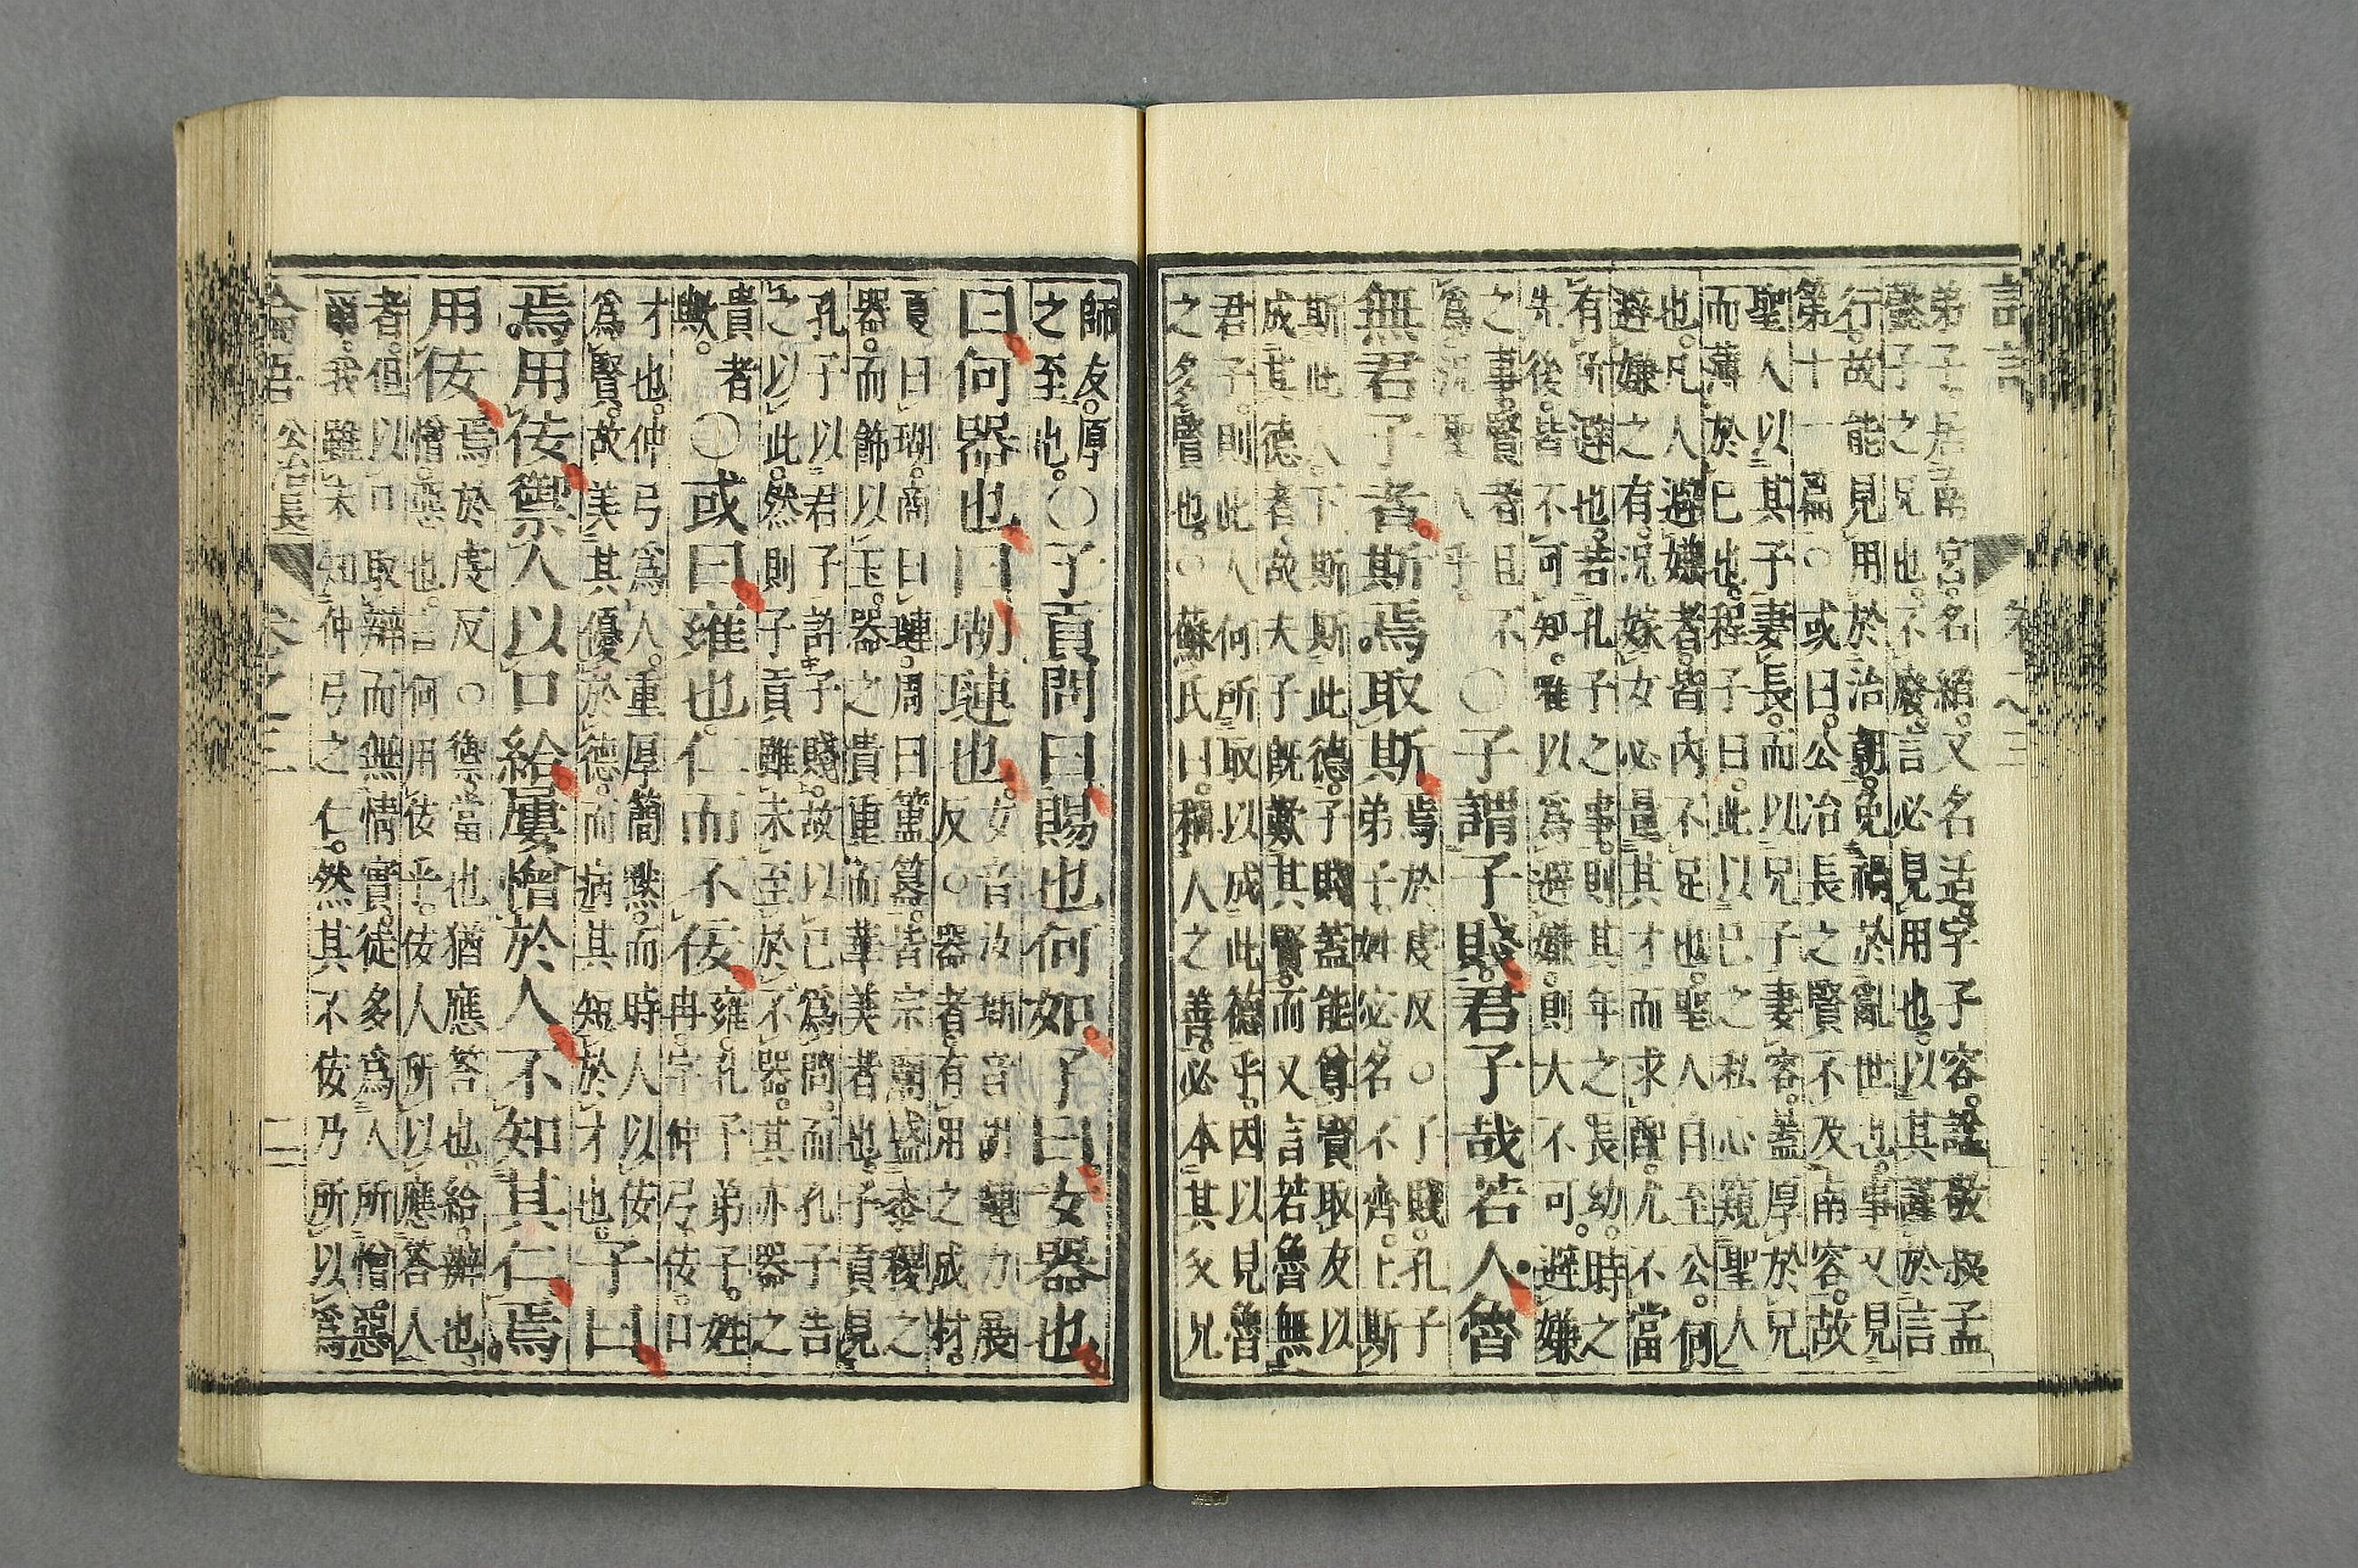 弟子居南宮。名縚。又名适。字子容。諡敬叔。孟
懿子之兄也。不廢。言必見用也。以其謹於言
行。故能見用於治朝。免禍於亂世也。事又見
第十一篇。○或曰。公冶長之賢不及南容。故
聖人以其子妻長。而以兄子妻容。蓋厚於兄
而薄於己也。程子曰。此以己之私心窺聖人
也。凡人避嫌者。皆內不足也。聖人自至公。何
避嫌之有。況嫁女必量其才而求配。尤不當
有所避也。若孔子之事。則其年之長幼。時之
先後。皆不可知。惟以爲避嫌。則大不可。避嫌
之事。賢者且不
爲。況聖人乎。
○子謂子賤。君子哉若人。魯
無君子者斯焉取斯
焉於虔反。○子賤。孔子
弟子。姓宓。名不齊。上斯
斯此人。下斯斯此德。子賤蓋能尊賢取友以
成其德者。故夫子既歎其賢。而又言若魯無
君子。則此人何所取以成此德乎。因以見魯
之多賢也。○蘇氏曰。稱人之善。必本其父兄
師友。厚
之至也。
○子貢問曰賜也何如子曰女器也
曰何器也曰瑚璉也。
女音汝瑚音胡璉力展
反。○器者。有用之成材。
夏曰瑚。商曰璉。周曰簠簋。皆宗廟盛黍稷之
器。而飾以玉。器之貴重而華美者也。子貢見
孔子以君子許子賤。故以己爲問。而孔子告
之以此。然則子貢雖未至於不器。其亦器之
貴者
歟。
○或曰雍也。仁而不佞
雍。孔子弟子。姓
冉。字仲弓。佞。口
才也。仲弓爲人。重厚簡默。而時人以佞
爲賢。故美其優於德。而病其短於才也。
子曰
焉用佞禦人以口給屢憎於人不知其仁。焉
用佞
焉於虔反。○禦。當也。猶應答也。給。辦也。
憎。惡也。言何用佞乎。佞人所以應答人
者。但以口取辦而無情實。徒多爲人所憎惡
爾。我雖未知仲弓之仁。然其不佞乃所以爲
論語 公冶長 卷之三 二